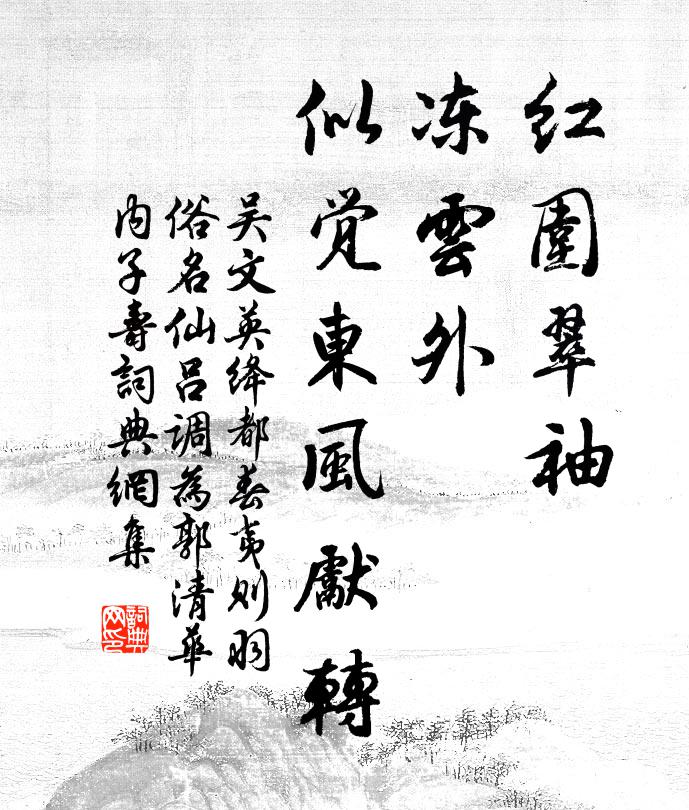 红圍翠袖
冻雲外
似觉東風獻轉
吴文英绛都春夷则羽
俗名仙吕調為郭清華
内子壽詞典網集
詞典
网印